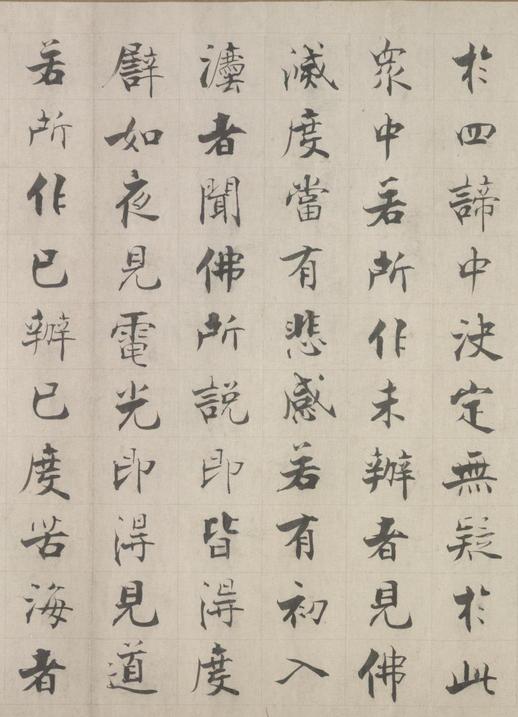 於四諦中決定無疑於此
衆中若所作未辦者見佛
滅度當有悲感若有初入
法者聞佛所説即皆得度
譬如夜見電光即得見道
若所作已辦已度苦海者